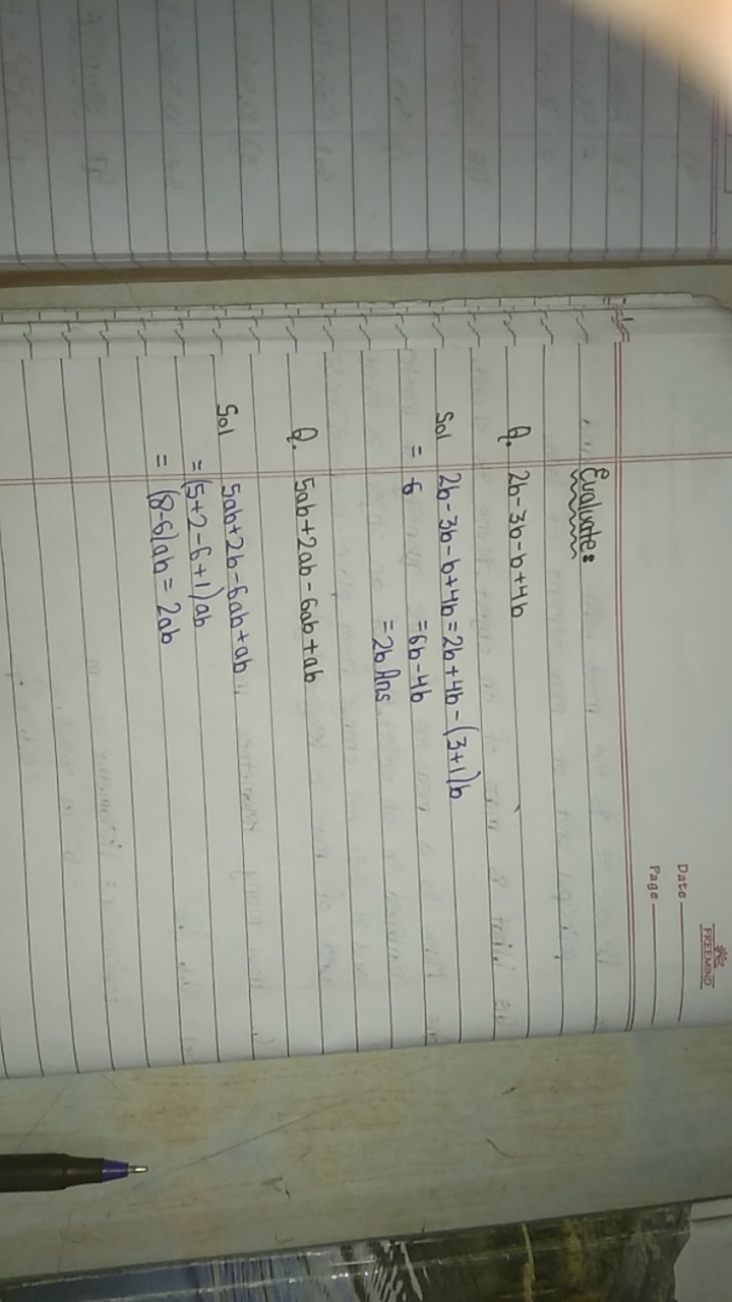 FREEMIND
Date
Page
Evaluate:
Q. 2b-3b-b+4b
Sol 2b-3b-b+4b = 2b+4b-(3+1)b
= 6 =6b-4b
=2b Ans
Q. 5ab+2ab-6ab+ab
Sol 5ab+2b-6ab+ab
=(5+2-6+1)ab
= (8-6)ab = 2ab